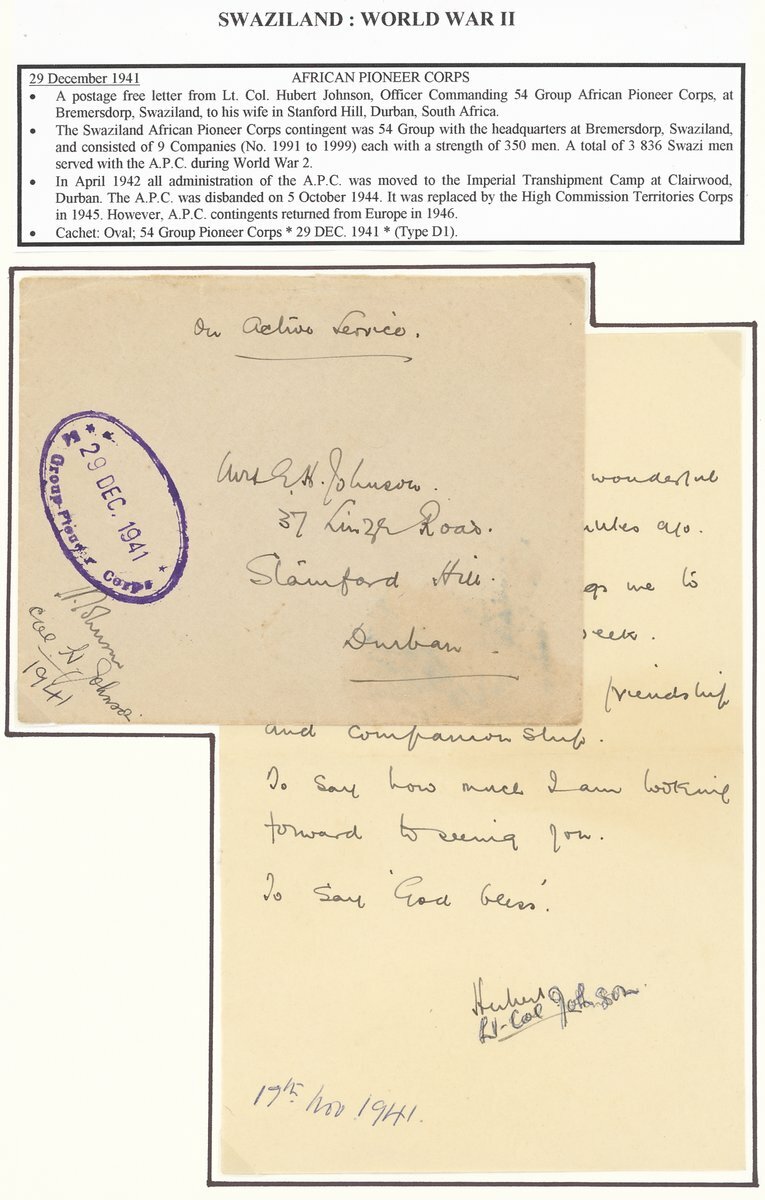 SWAZILAND : WORLD WAR II
29 December 1941 AFRICAN PIONEER CORPS
• A postage free letter from Lt. Col. Hubert Johnson, Officer Commanding 54 Group African Pioneer Corps, at
Bremersdorp, Swaziland, to his wife in Stanford Hill, Durban, South Africa.
• The Swaziland African Pioneer Corps contingent was 54 Group with the headquarters at Bremersdorp, Swaziland,
and consisted of 9 Companies (No. 1991 to 1999) each with a strength of 350 men. A total of 3 836 Swazi men
served with the A.P.C. during World War 2.
• In April 1942 all administration of the A.P.C. was moved to the Imperial Transhipment Camp at Clairwood,
Durban. The A.P.C. was disbanded on 5 October 1944. It was replaced by the High Commission Territories Corps
in 1945. However, A.P.C. contingents returned from Europe in 1946.
• Cachet: Oval; 54 Group Pioneer Corps * 29 DEC. 1941 * (Type D1).
On Active Service.
29 DEC. 1941
Group Pioneer Corps
Mrs E. H. Johnson.
37 Road.
Stamford Hill.
Durban.
H. Johnson
Col H Johnson
1941
wonderful
ago.
me to
week.
friendship
and companionship.
To say how much I am looking
forward to seeing you.
To say 'God bless'.
Hubert Johnson
Lt-Col
17th Nov 1941.